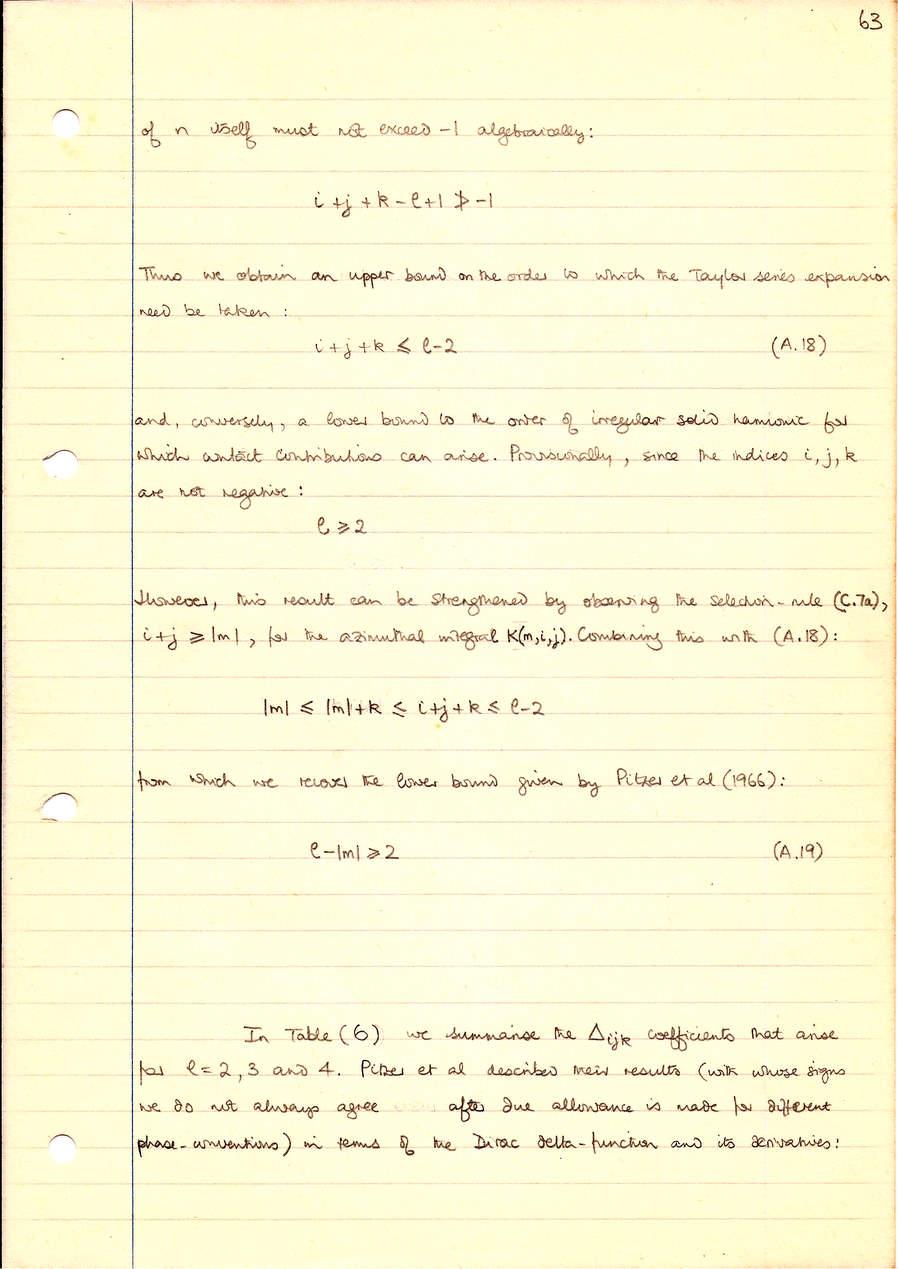 63
of n itself must not exceed -1 algebraically:
i+j+k-ℓ+1 ≯ -1
Thus we obtain an upper bound on the order to which the Taylor series expansion
need be taken :
i+j+k ⩽ ℓ-2 (A.18)
and, conversely, a lower bound to the order of irregular solid harmonic for
which contact contributions can arise. Provisionally, since the indices i, j, k
are not negative :
ℓ ⩾ 2
However, this result can be strengthened by observing the selection-rule (C.7a),
i+j ⩾ |m|, for the azimuthal integral K(m,i,j). Combining this with (A.18):
|m| ⩽ |m|+k ⩽ i+j+k ⩽ ℓ-2
from which we recover the lower bound given by Pitzer et al (1966):
ℓ-|m| ⩾ 2 (A.19)
In Table (6) we summarise the Δijk coefficients that arise
for ℓ = 2, 3 and 4. Pitzer et al described their results (with whose signs
we do not always agree after due allowance is made for different
phase-conventions) in terms of the Dirac delta-function and its derivatives: